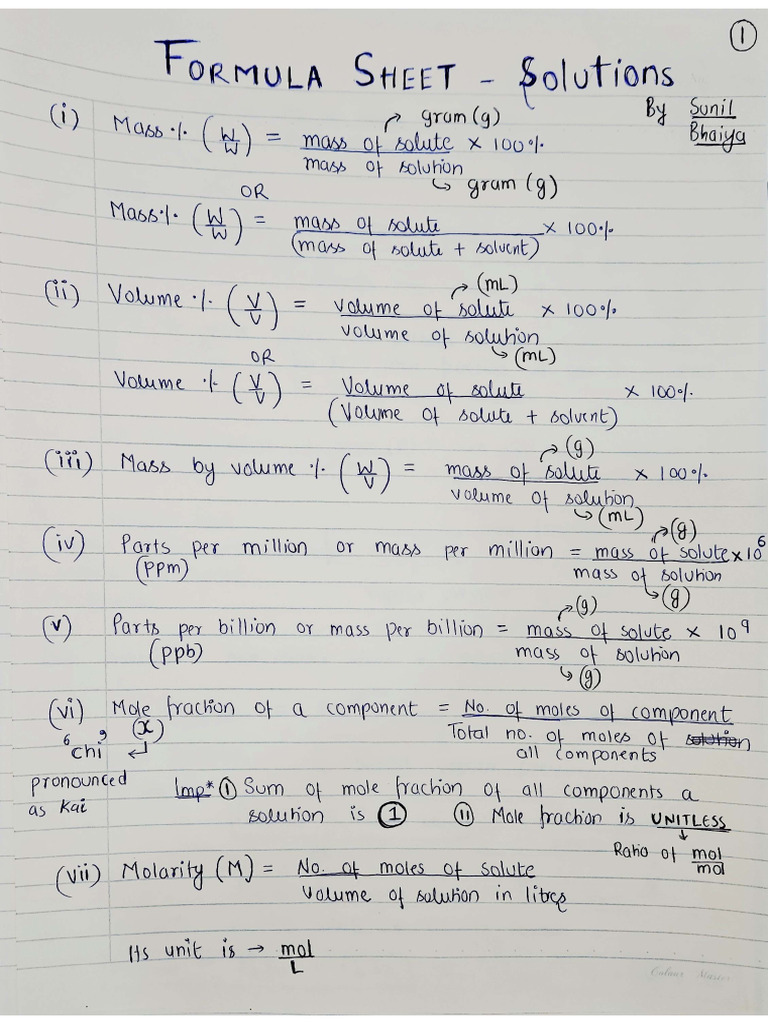 ①
FORMULA SHEET - Solutions
By Sunil
Bhaiya
→ gram (g)
(i) Mass % (W/W) = mass of solute / mass of solution × 100%
↳ gram (g)
OR
Mass % (W/W) = mass of solute / (mass of solute + solvent) × 100%
→ (mL)
(ii) Volume % (V/V) = volume of solute / volume of solution × 100%
↳ (mL)
OR
Volume % (V/V) = Volume of solute / (Volume of solute + solvent) × 100%
→ (g)
(iii) Mass by volume % (W/V) = mass of solute / volume of solution × 100%
↳ (mL)
→ (g)
(iv) Parts per million or mass per million = mass of solute / mass of solution × 10⁶
(ppm)
↳ (g)
→ (g)
(v) Parts per billion or mass per billion = mass of solute / mass of solution × 10⁹
(ppb)
↳ (g)
(vi) Mole fraction of a component = No. of moles of component / Total no. of moles of solution all components
(x)
"chi" ↵
pronounced
as kai
Imp* ① Sum of mole fraction of all components a
solution is ① ⑪ Mole fraction is UNITLESS
↓
Ratio of mol/mol
(vii) Molarity (M) = No. of moles of solute / Volume of solution in litres
Its unit is → mol/L
Colour Master